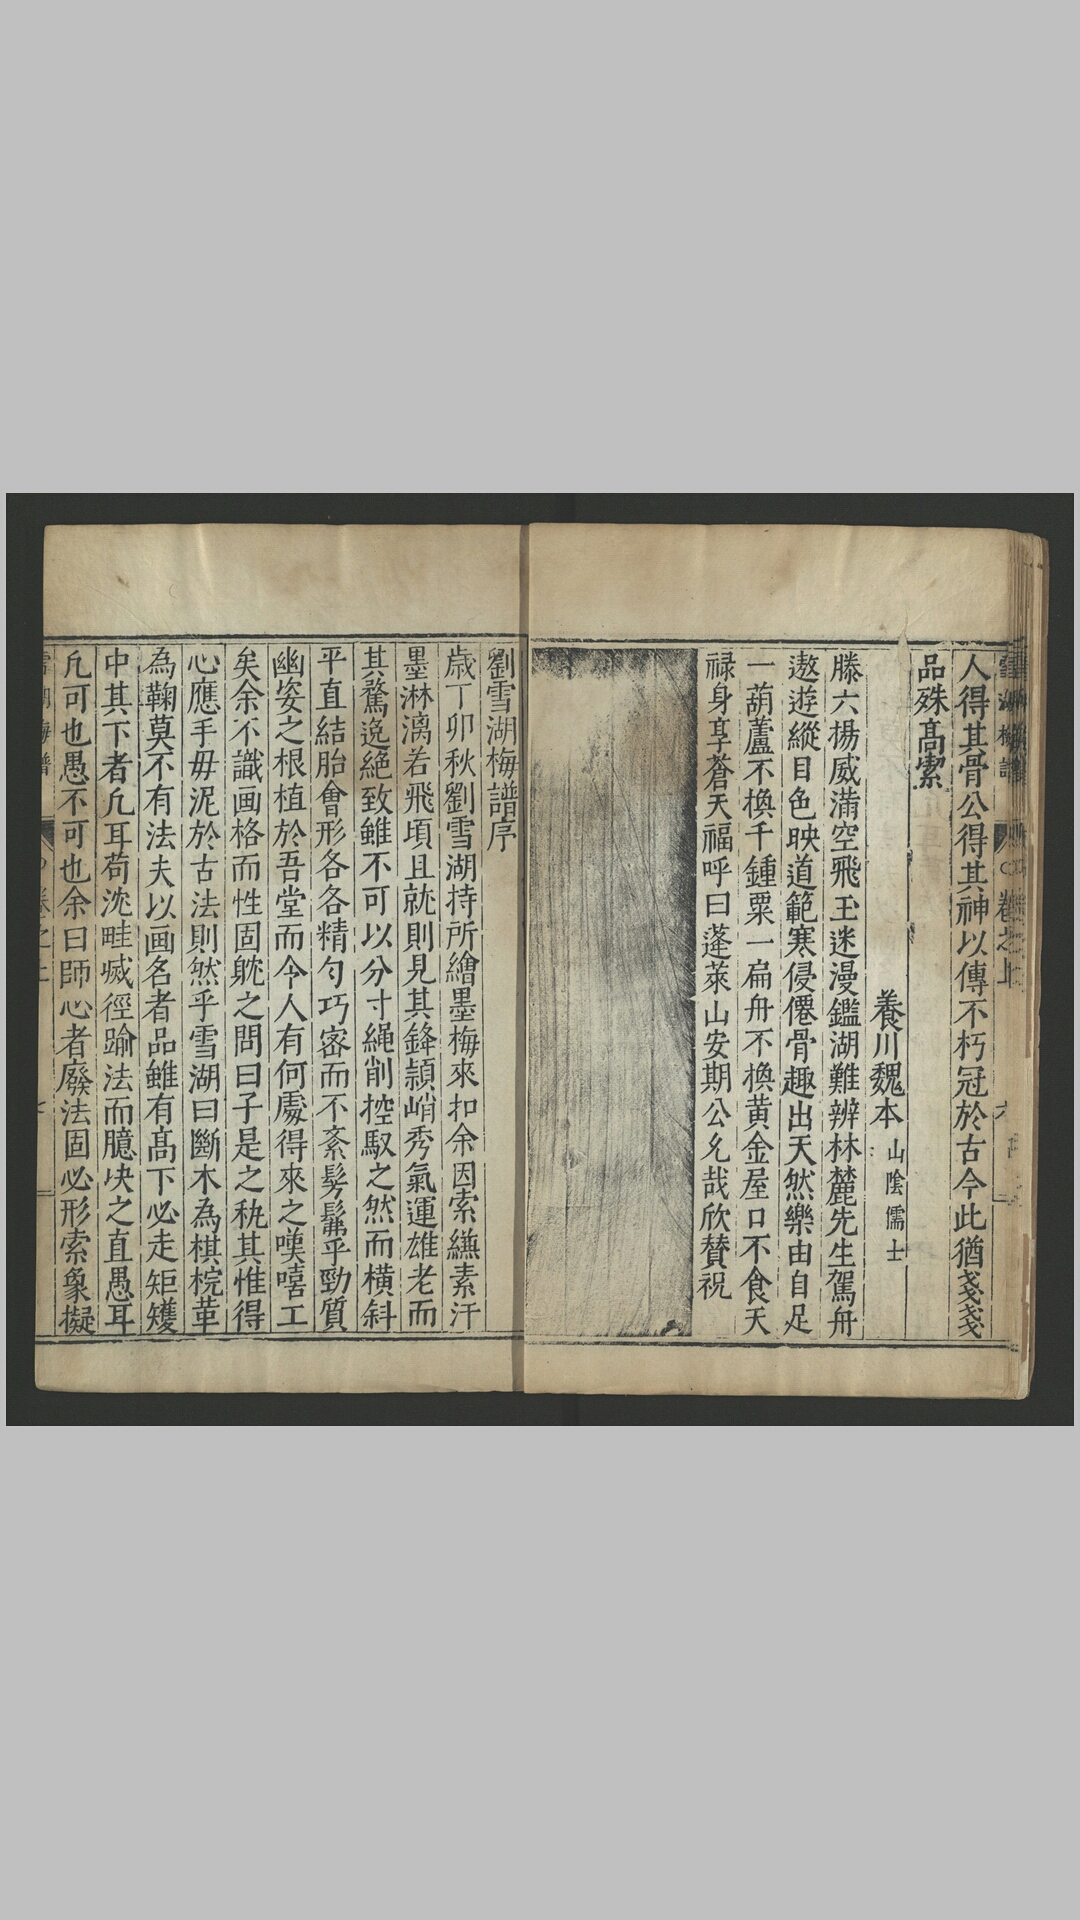 人得其骨公得其神以傳不朽冠於古今此猶戔戔
品殊髙索
養川魏本山陰儒士
滕六揚威滿空飛玉迷漫鑑湖難辨林麓先生駕舟
遨遊縱目色映道範寒侵僊骨趣出天然樂由自足
一葫蘆不換千鍾粟一扁舟不換黄金屋口不食天
禄身享蒼天福呼曰蓬萊山安期公允哉欣賛祝
劉雪湖梅譜序
歳丁卯秋劉雪湖持所繪墨梅來扣余因索縑素汗
墨淋漓若飛頃且就則見其鋒頴峭秀氣運雄老而
其騖逸絕致雖不可以分寸繩削控馭之然而橫斜
平直結胎會形各各精勻巧宻而不紊髣髴乎勁質
幽姿之根植於吾堂而今人有何處得來之嘆嘻工
矣余不識画格而性固躭之問曰子是之秇其惟得
心應手毋泥於古法則然乎雪湖曰斷木為棋梡革
為鞠莫不有法夫以画名者品雖有髙下必走矩矱
中其下者凢耳苟沈畦㓕徑踰法而臆抉之直愚耳
凢可也愚不可也余曰師心者廢法固必形索象擬
雪湖梅譜 卷之上 七